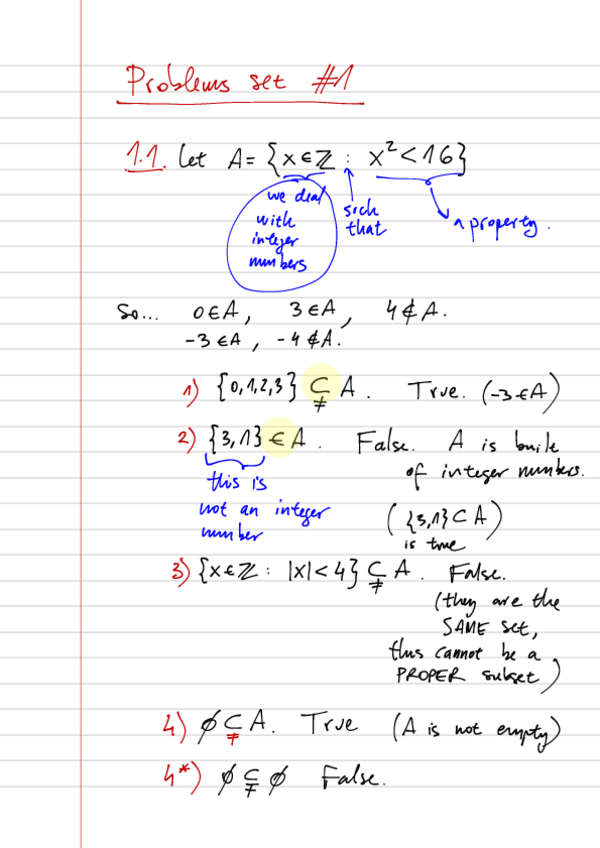 Problems set #1
1.1. Let A = {x ∈ ℤ : x² < 16}
we deal
with
integer
numbers
sich
that
a property.
So... 0 ∈ A, 3 ∈ A, 4 ∉ A.
-3 ∈ A, -4 ∉ A.
1) {0,1,2,3} ⊊ A. True. (-3 ∈ A)
2) {3,1} ∈ A. False. A is built
of integer numbers.
this is
not an integer
number
({3,1} ⊂ A)
is true
3) {x ∈ ℤ : |x| < 4} ⊊ A. False.
(they are the
SAME set,
thus cannot be a
PROPER subset)
4) ∅ ⊊ A. True (A is not empty)
4*) ∅ ⊊ ∅ False.